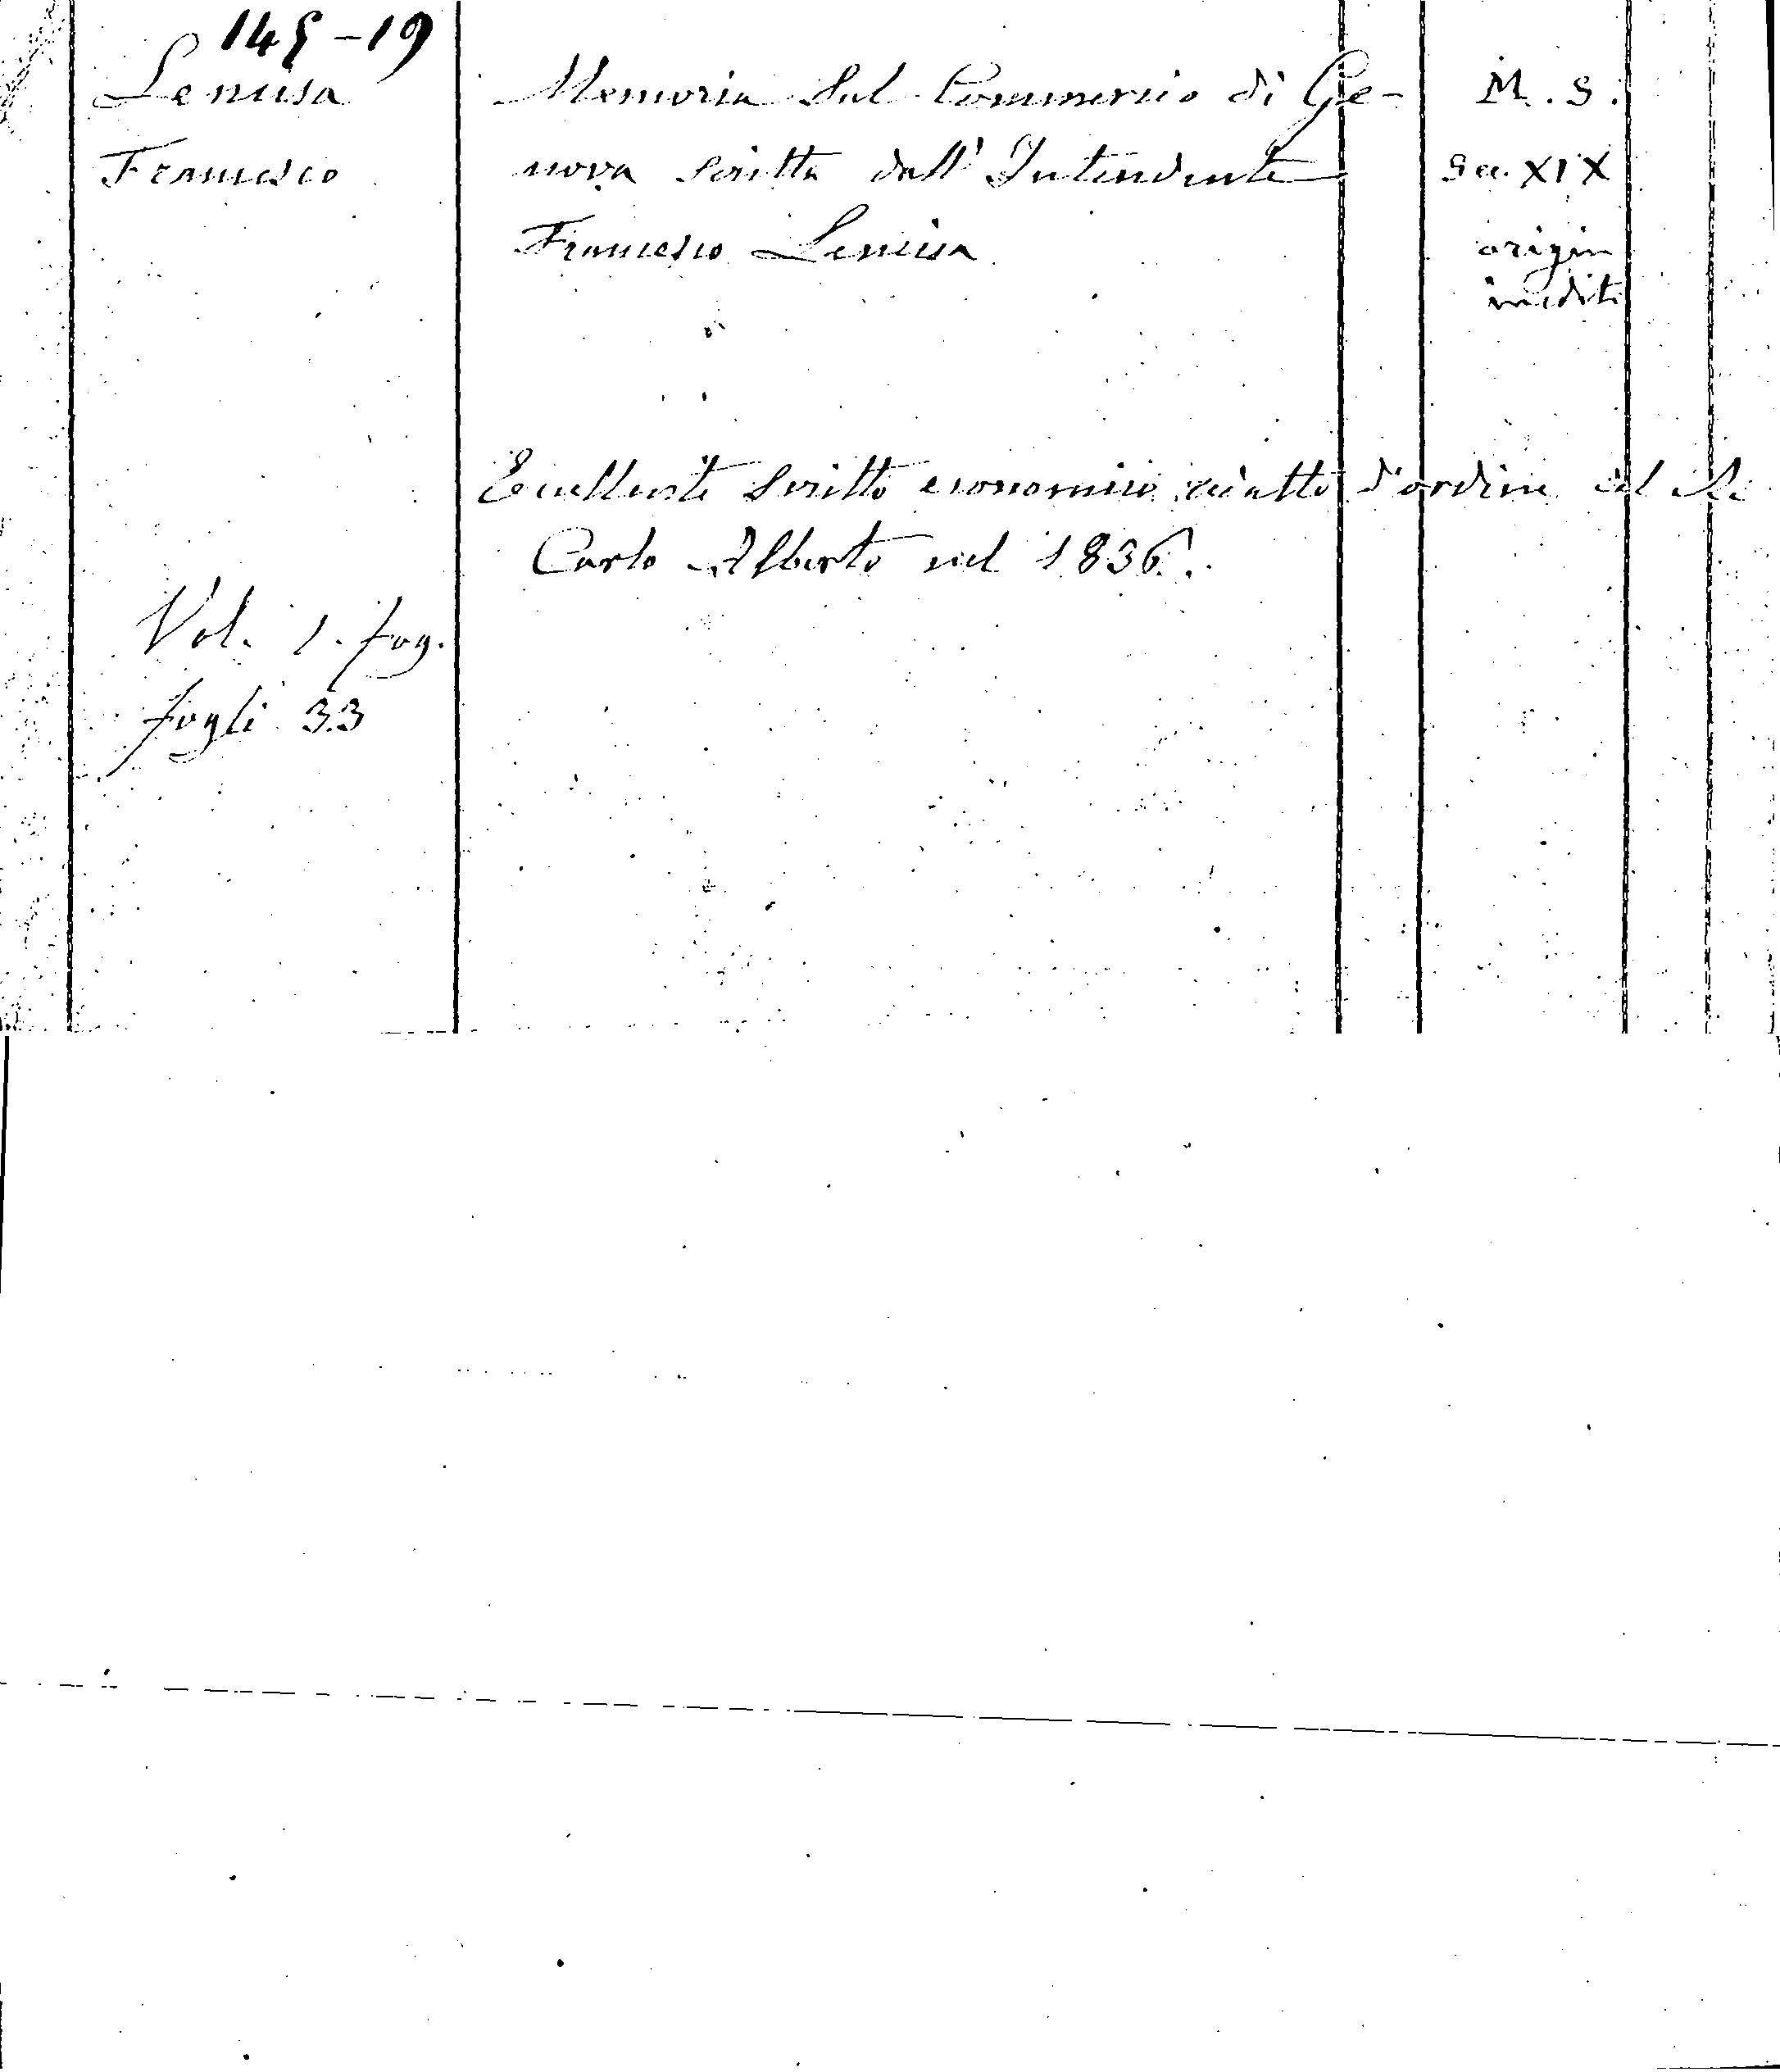 145-19
Lencisa
Francesco
Memoria sul Commercio di Ge-
nova scritta dall' Intendente
Francesco Lencisa
M. S.
Sec. XIX
origin
inedito
Eccellente scritto economico redatto d'ordine del Re
Carlo Alberto nel 1836.
Vol. 1. fog.
fogli 33